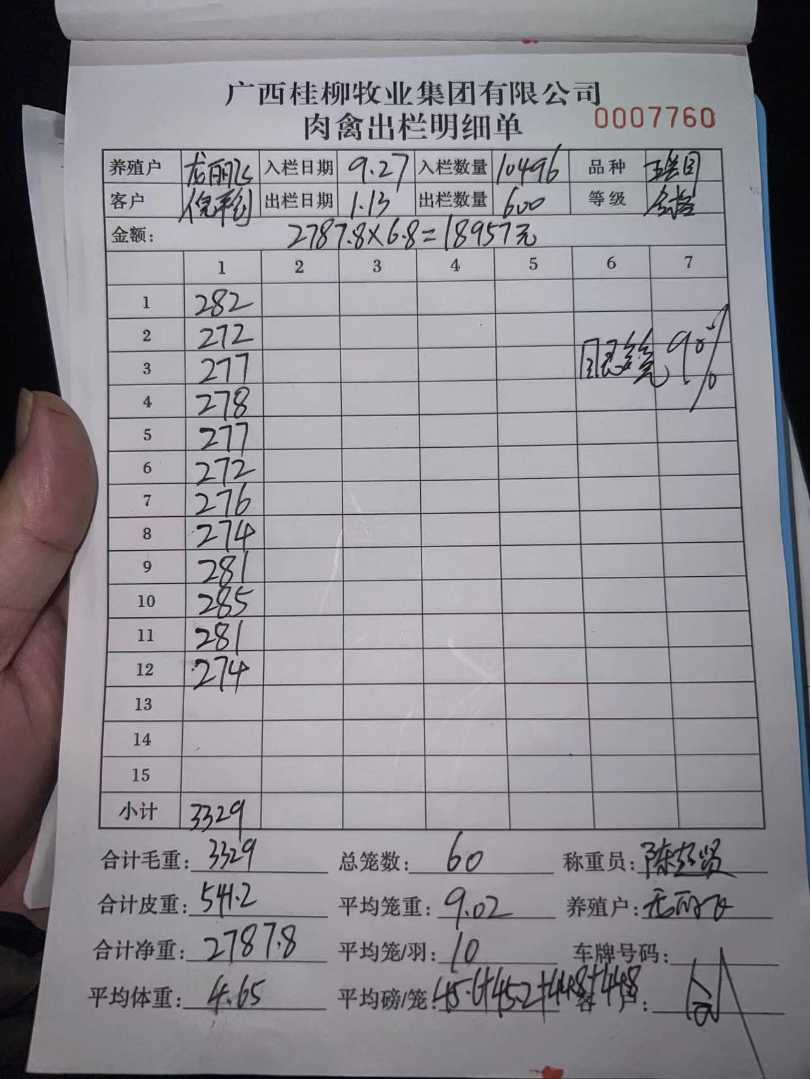 广西桂柳牧业集团有限公司
肉禽出栏明细单 0007760
养殖户 龙丽飞 入栏日期 9.27 入栏数量 10496 品种
客户 倪 出栏日期 1.13 出栏数量 600 等级 合格
金额: 2787.8×6.8=18957元
1 2 3 4 5 6 7
1 282
2 272
3 277 笼 90%
4 278
5 277
6 272
7 276
8 274
9 281
10 285
11 281
12 274
13
14
15
小计 3329
合计毛重: 3329 总笼数: 60 称重员: 陈 贤
合计皮重: 541.2 平均笼重: 9.02 养殖户: 龙丽飞
合计净重: 2787.8 平均笼/羽: 10 车牌号码:
平均体重: 4.65 平均磅/笼: 45.6+45.2+448+448 客户: